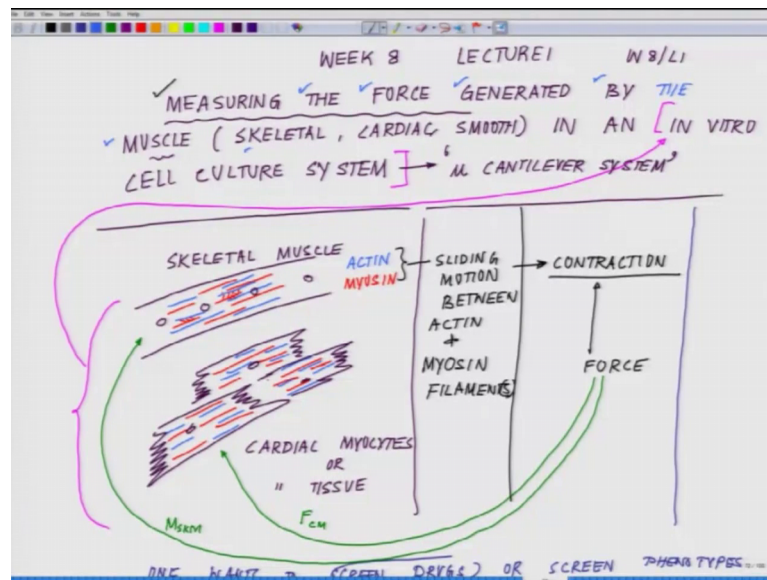 File Edit View Insert Actions Tools Help
WEEK 8 LECTURE1 W8/L1
MEASURING THE FORCE GENERATED BY THE
MUSCLE ( SKELETAL , CARDIAC SMOOTH) IN AN [IN VITRO
CELL CULTURE SYSTEM] → 'μ CANTILEVER SYSTEM'
SKELETAL MUSCLE
ACTIN
MYOSIN
SLIDING
MOTION
BETWEEN
ACTIN
+
MYOSIN
FILAMENTS
CONTRACTION
FORCE
CARDIAC MYOCYTES
OR
" TISSUE
MSKM
FCM
ONE WANT SCREEN DRUGS) OR SCREEN PHENOTYPES